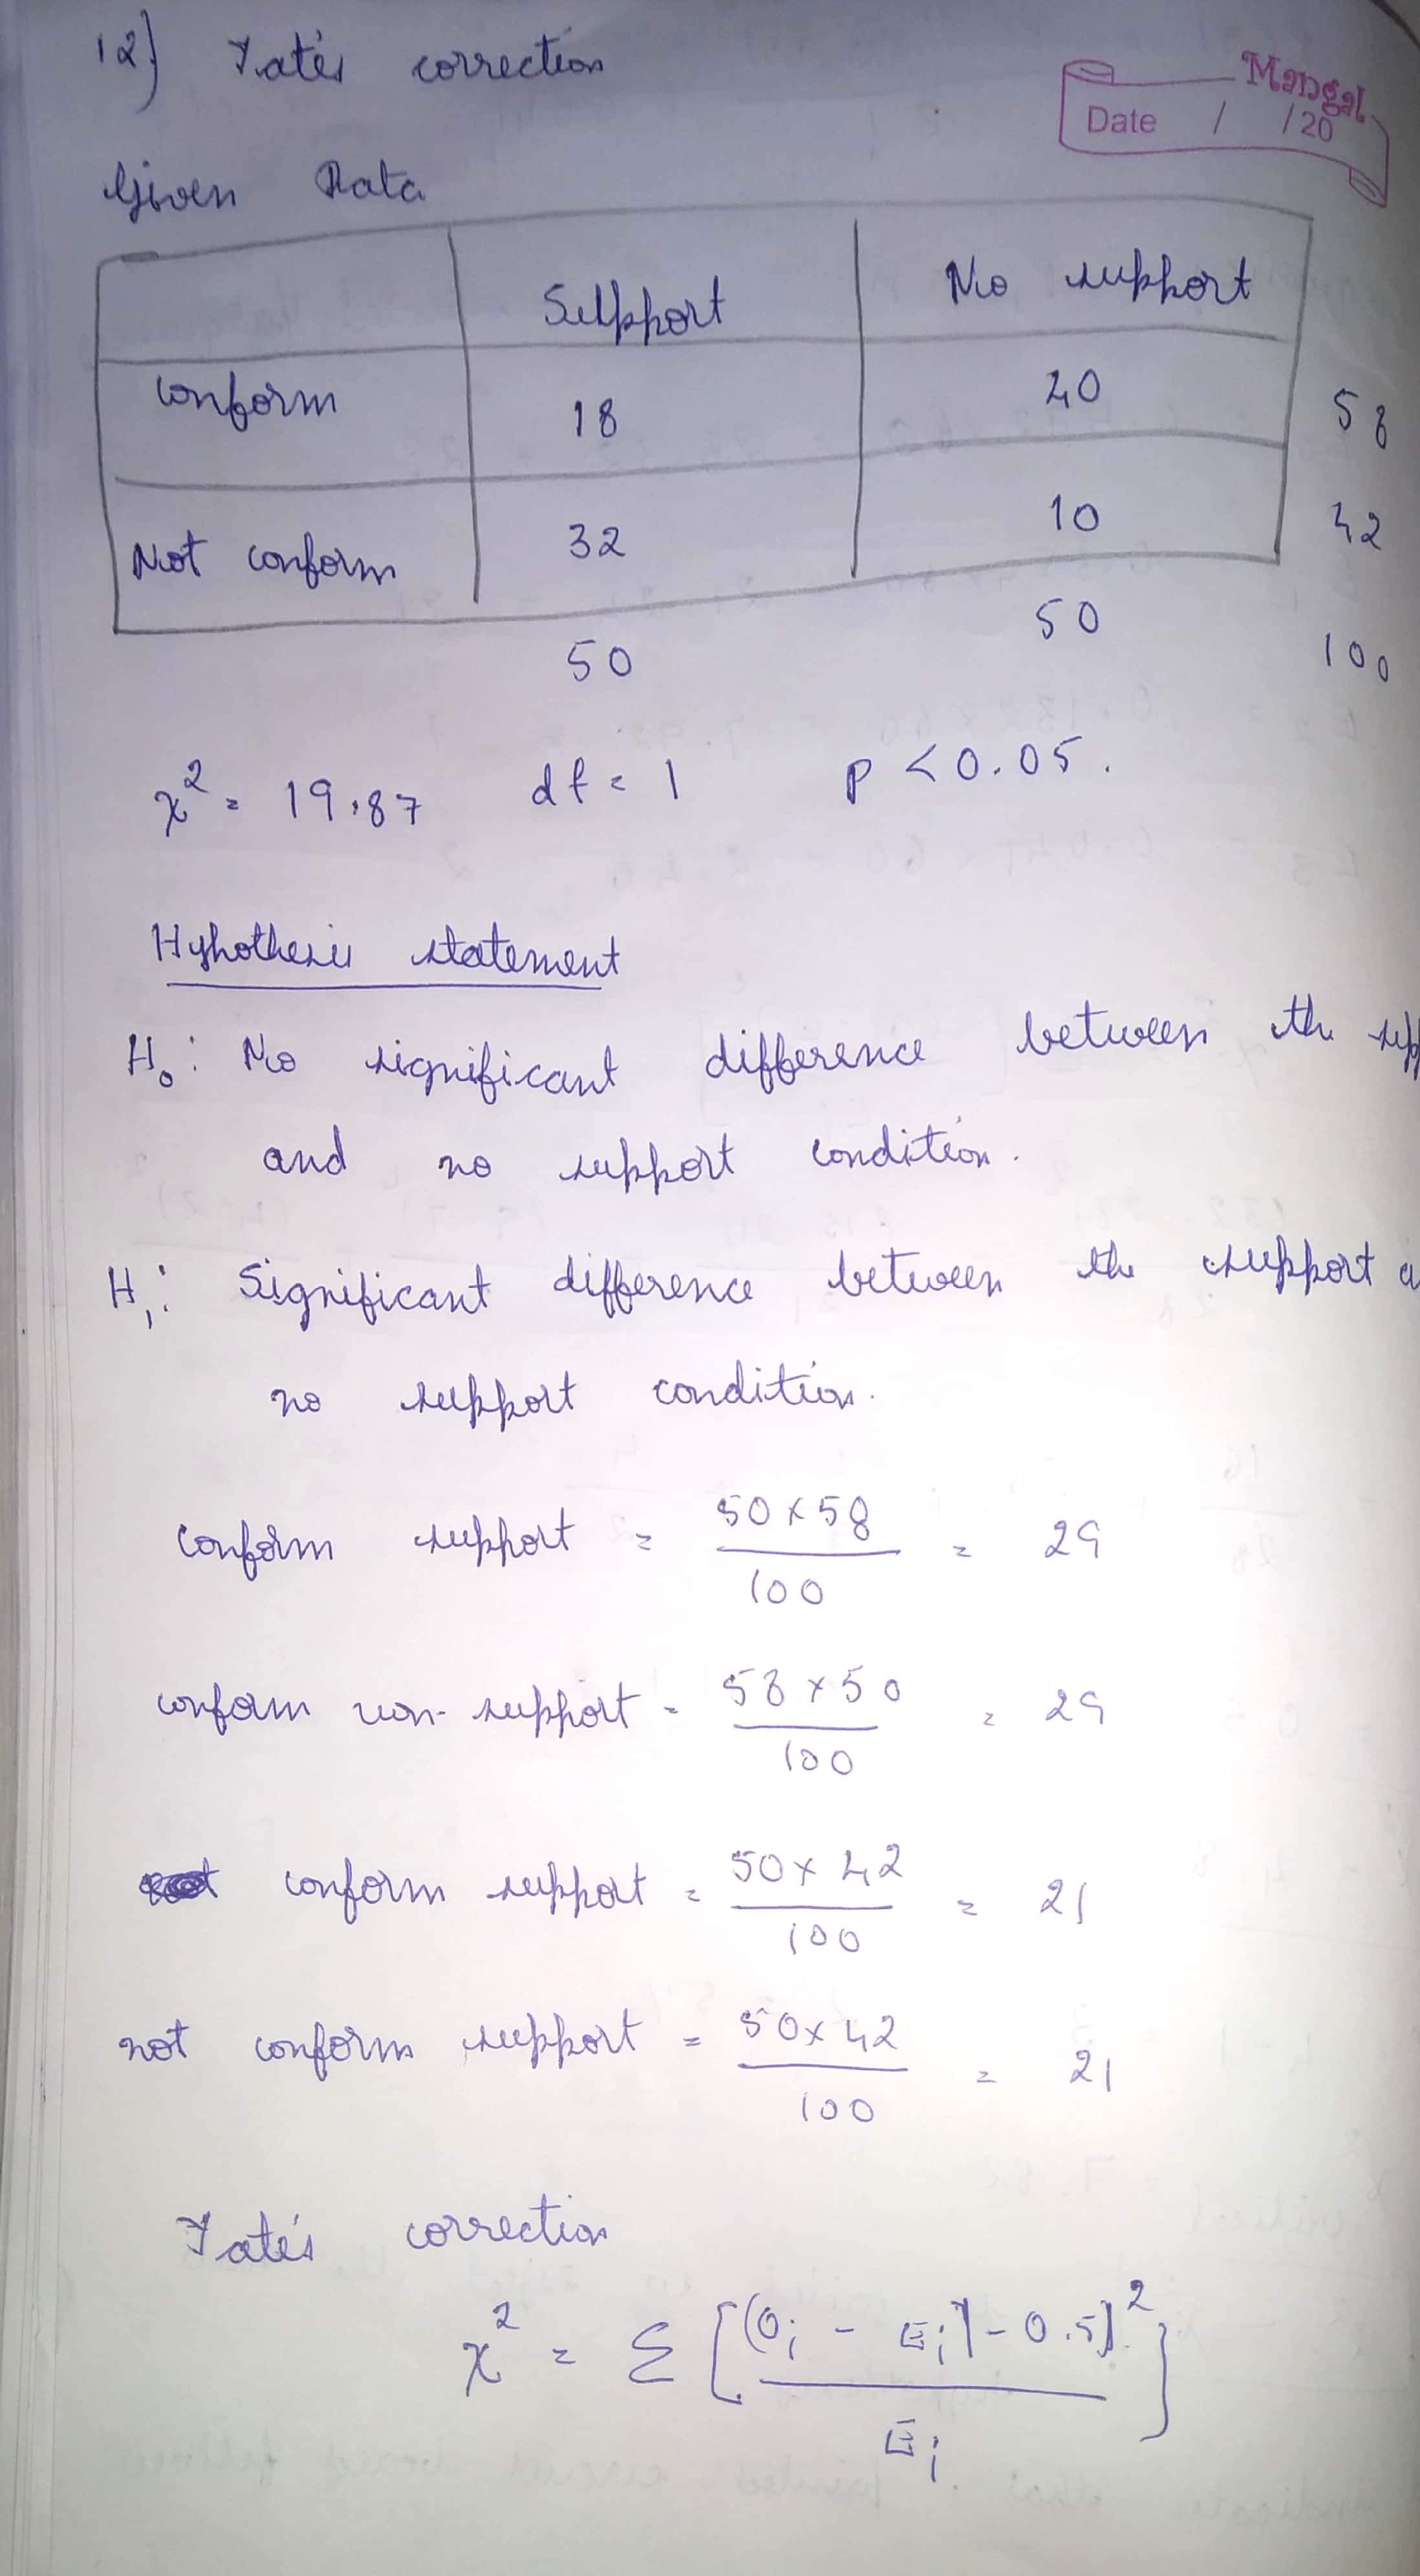 12) Yate's correction
Mangal
Date / /20
Given Data
Support No support
Conform 18 40 58
Not conform 32 10 42
50 50 100
χ² = 19.87 df = 1 p < 0.05.
Hypothesis statement
H₀: No significant difference between the
and no support condition.
H₁: Significant difference between the support
no support condition.
Conform support = 50 × 58 / 100 = 29
conform non-support = 58 × 50 / 100 = 29
conform support = 50 × 42 / 100 = 21
not conform support = 50 × 42 / 100 = 21
Yate's correction
χ² = Σ [(Oᵢ - Eᵢ| - 0.5)² / Eᵢ]